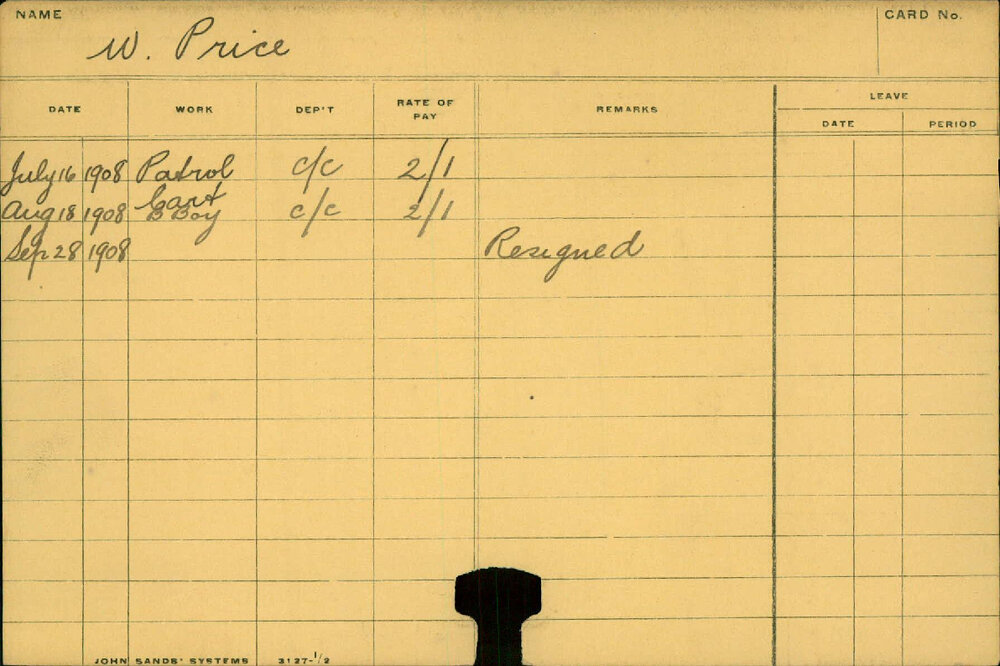 NAME
W. Price
CARD No.
DATE WORK DEP'T RATE OF PAY REMARKS LEAVE
DATE PERIOD
July 16 1908 Patrol c/c 2/1
Aug 18 1908 Cart Boy c/c 2/1
Sep 28 1908 Resigned
JOHN SANDS' SYSTEMS 3127-1/2